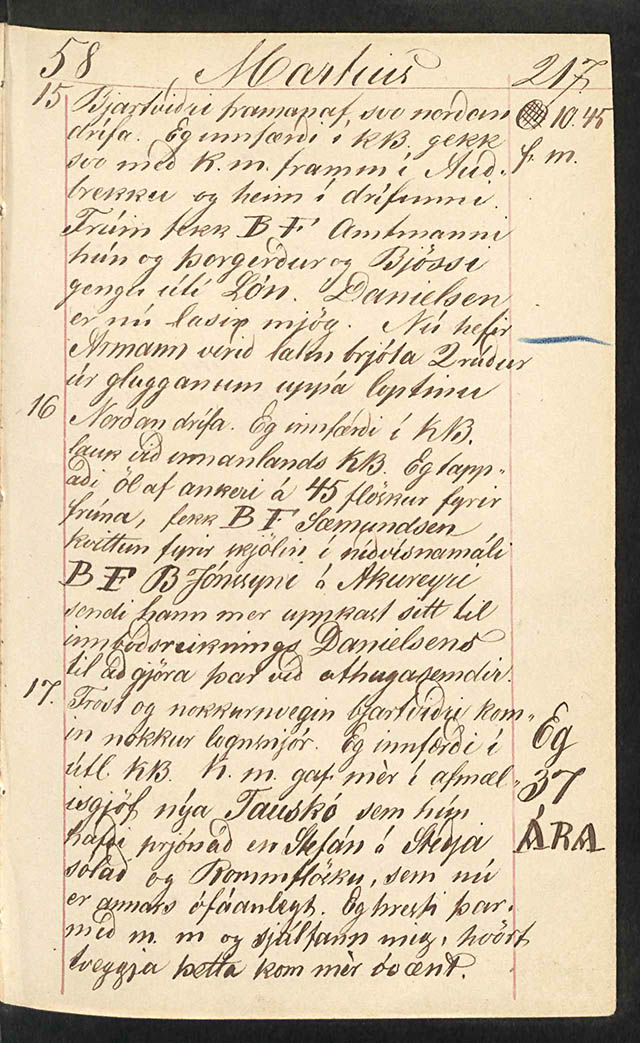 58 Martius 217
15 Bjartviðri framanaf, svo norðan
drífa. Eg innfærði í KB. gekk
svo með K. m. framm í Auð-
brekku og heim í drífunni.
10.45
f. m.
Frúin fekk BF Amtmanni
hún og Þorgerður og Bjössi
gengu útí Lón. Danielsen
er nú lasin mjög. Nú hefir
Armann verið latin brjóta 2 rúður
úr glugganum uppá loptinu
16 Norðan drífa. Eg innfærði í KB.
lauk við innanlands KB. Eg tapp-
aði öl af ankeri á 45 flöskur fyrir
frúna, fekk BF Sæmundsen
kvittun fyrir skjölin i níðvísnamáli
BF B Jónssyni á Akureyri
sendi hann mer uppkast sitt til
umboðsreiknings Danielsens
til að gjöra þar við athugasemdir.
17. Frost og nokkurnvegin bjartviðri kom-
in nokkur lognsnjór. Eg innfærði í
útl. KB. K. m. gaf mèr í afmæl-
isgjöf nýa Tauskó sem hún
hafði prjónað en Stefán á Steðja
solað og Rommflösku, sem nú
er annars ófáanlegt. Eg hresti þar-
með m. m og sjálfann mig, hvört
tveggja þetta kom mèr óvænt.
Eg
37
ÁRA